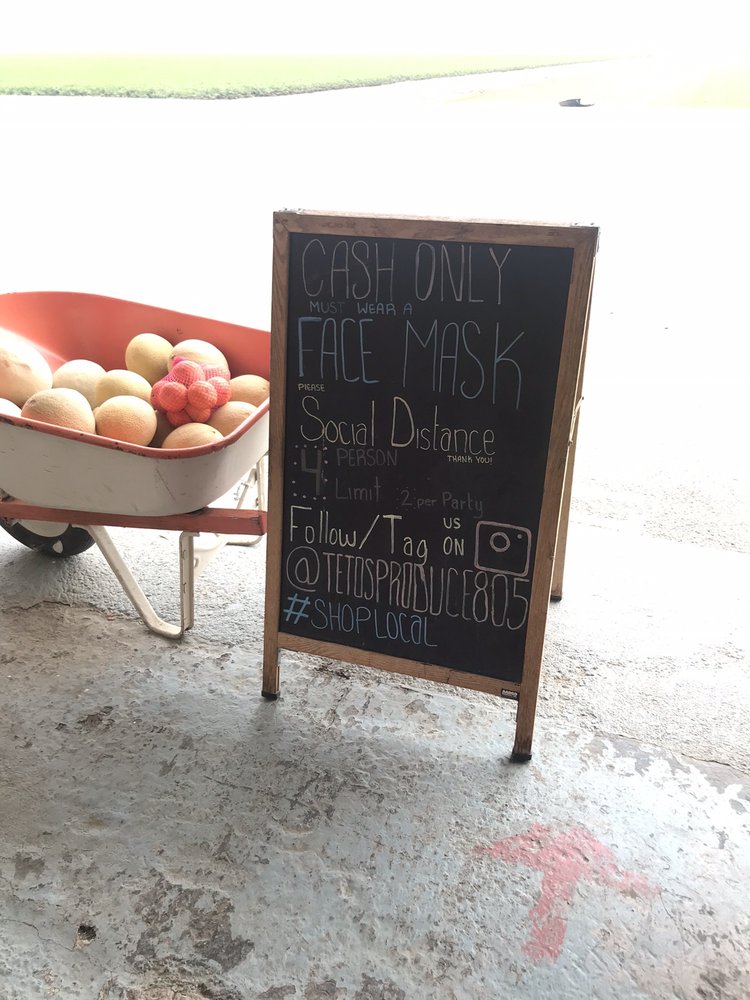 CASH ONLY
MUST WEAR A
FACE MASK
PLEASE
Social Distance
THANK YOU!
4 PERSON
Limit 2 per Party
Follow/Tag US ON
@TETOSPRODUCE805
#SHOPLOCAL